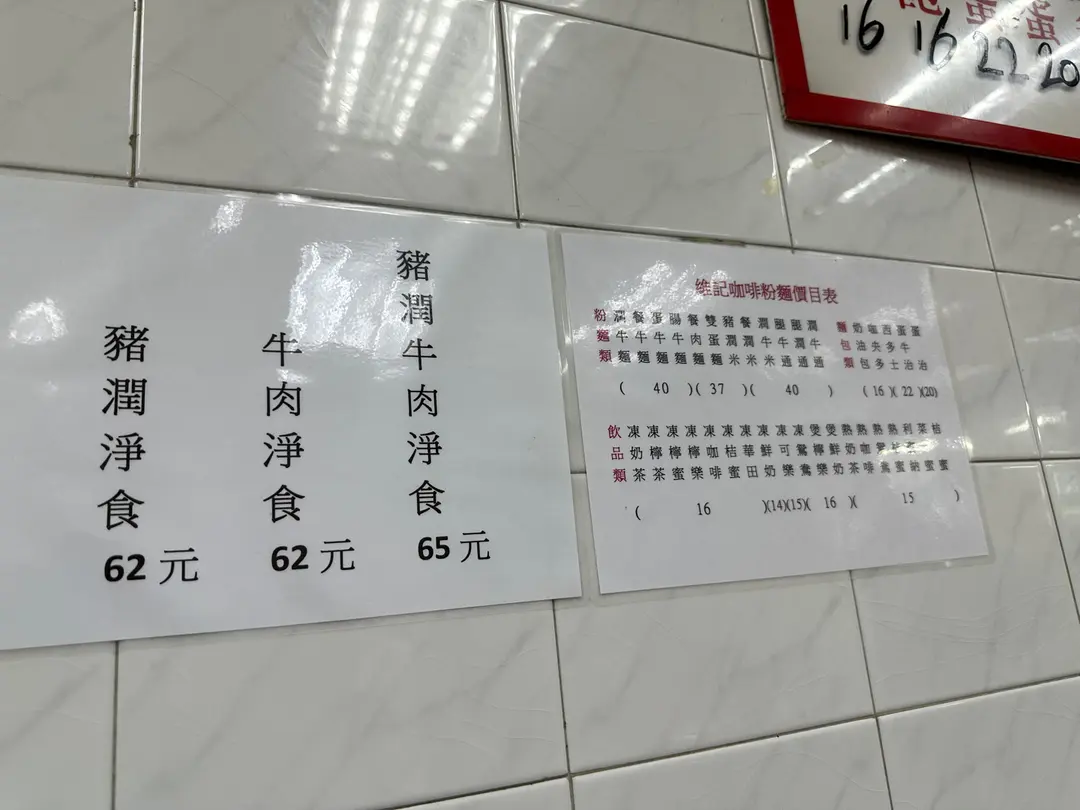 豬潤淨食
62元
牛肉淨食
62元
豬潤牛肉淨食
65元
維記咖啡粉麵價目表
粉潤餐蛋腸餐雙豬餐潤腿腿潤
麵牛牛牛牛肉蛋潤潤牛牛潤牛
類麵麵麵麵麵麵米米米通通通
( 40 )( 37 )( 40 )
麵奶咖西蛋蛋
包油央多牛
類包多士治治
(16)(22)(20)
飲凍凍凍凍凍凍凍凍凍凍煲煲熱熱熱熱利菜桔
品奶檸檸檸咖桔華鮮可鴛檸鮮奶咖鴛
類茶茶蜜樂啡蜜田奶樂鴦樂奶茶啡鴦蜜納蜜蜜
( 16 )(14)(15)( 16 )( 15 )
16 16 22 20